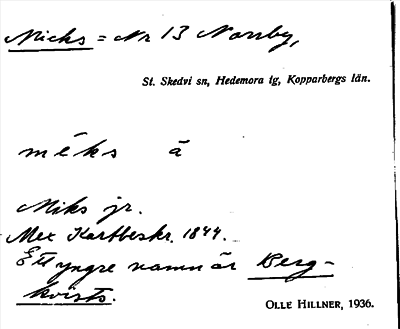 Nicks = Nr 13 Norrby,
St. Skedvi sn, Hedemora tg, Kopparbergs län.
mēks ā
Miks jr.
Mex Kartbeskr. 1844.
Ett yngre namn är Berg-
kvists.
OLLE HILLNER, 1936.